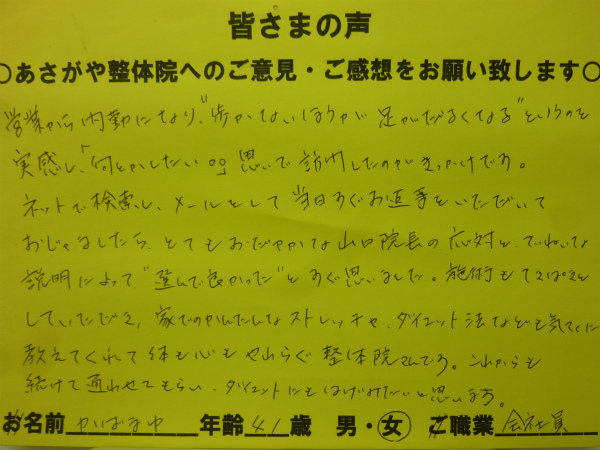 皆さまの声
○あさがや整体院へのご意見・ご感想をお願い致します○
営業から内勤になり、"歩かないほうが足がだるくなる"というのを
実感し、「何とかしたい!!」の思いで訪問したのがきっかけです。
ネットで検索し、メールをして当日すぐお返事をいただいて
おじゃましたら、とてもおだやかな山口院長の応対と、ていねいな
説明によって、"選んで良かった"とすぐ思いました。施術もてきぱきと
していただき、家でのかんたんなストレッチや、ダイエット法なども気さくに
教えてくれて体も心もやわらぐ整体院さんです。これからも
続けて通わせてもらい、ダイエットにもはげみたいと思います。
お名前 かいばまゆ 年齢 41 歳 男・女 ご職業 会社員